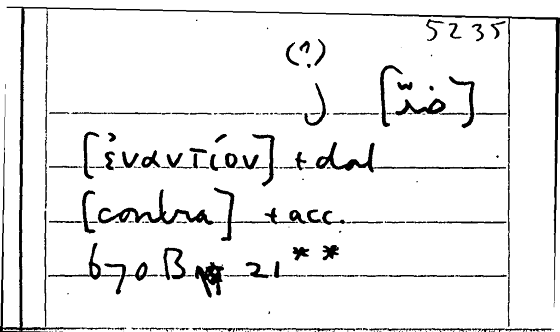 5235
(?)
ل [ضد]
[ἐναντίον] + dat
[contra] + acc.
670 B 21 **